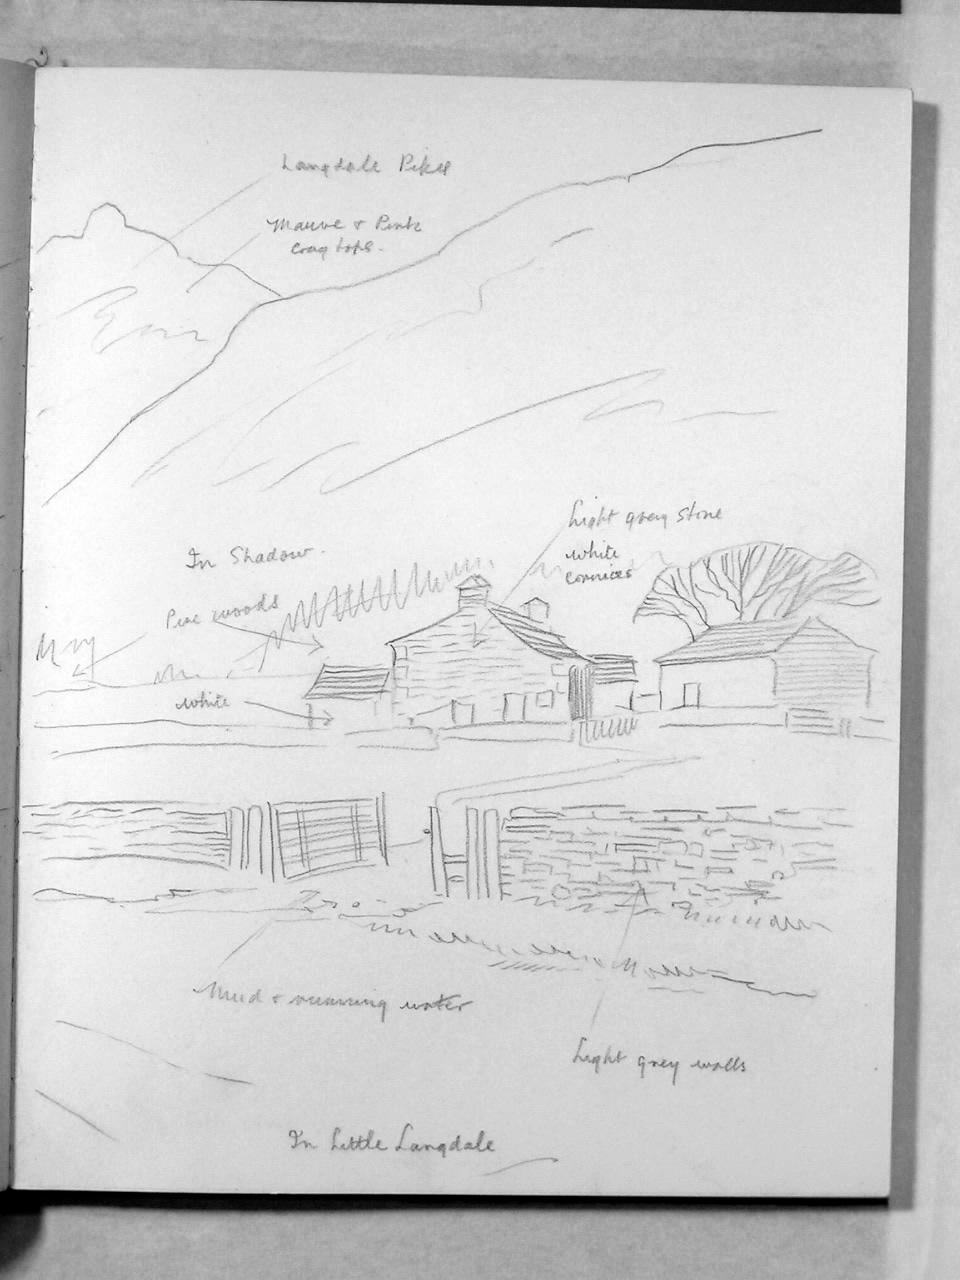 Langdale Pikes
Mauve & Pink
crag tops.
Light grey stone
white
cornices
In Shadow.
Pine woods
white
Mud & running water
Light grey walls
In Little Langdale